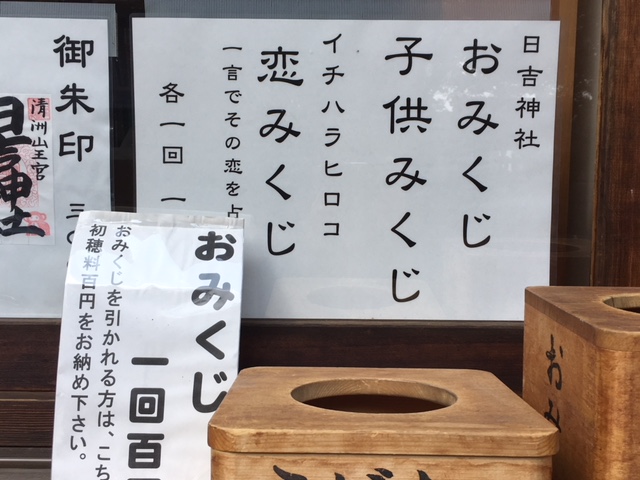 日吉神社
おみくじ
子供みくじ
イチハラヒロコ
恋みくじ
一言でその恋を占
各一回 一
御朱印 三
清洲山王宮
日吉神社
おみくじ
一回百
おみくじを引かれる方は、こち
初穂料百円をお納め下さい。
おみ